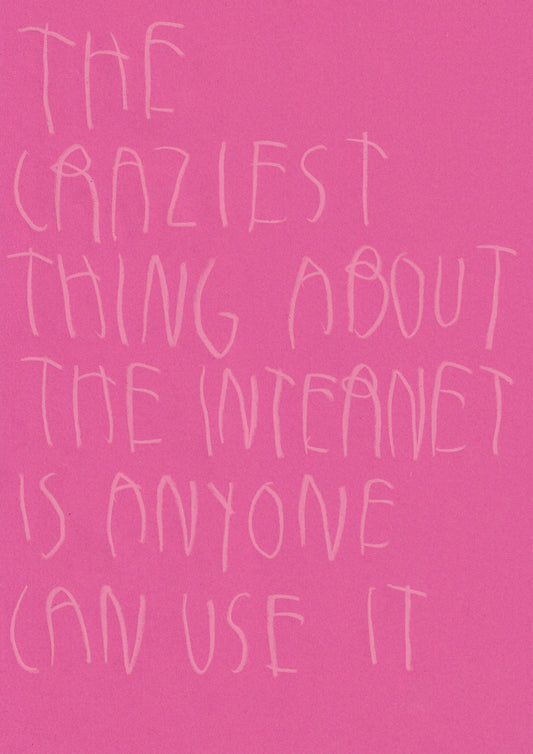 THE
CRAZIEST
THING ABOUT
THE INTERNET
IS ANYONE
CAN USE IT